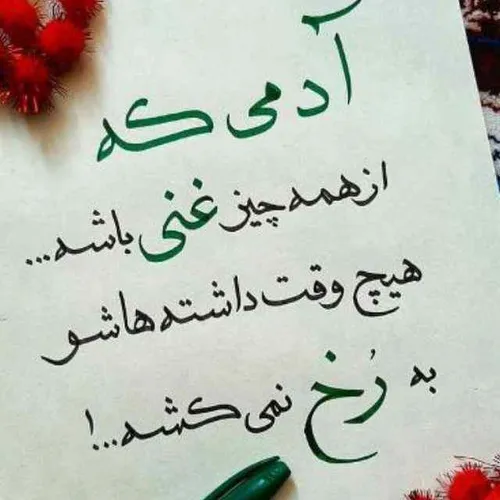 آدمی که
از همه چیز غنی باشه...
هیچ وقت داشته هاشو
به رُخ نمی کشه...!